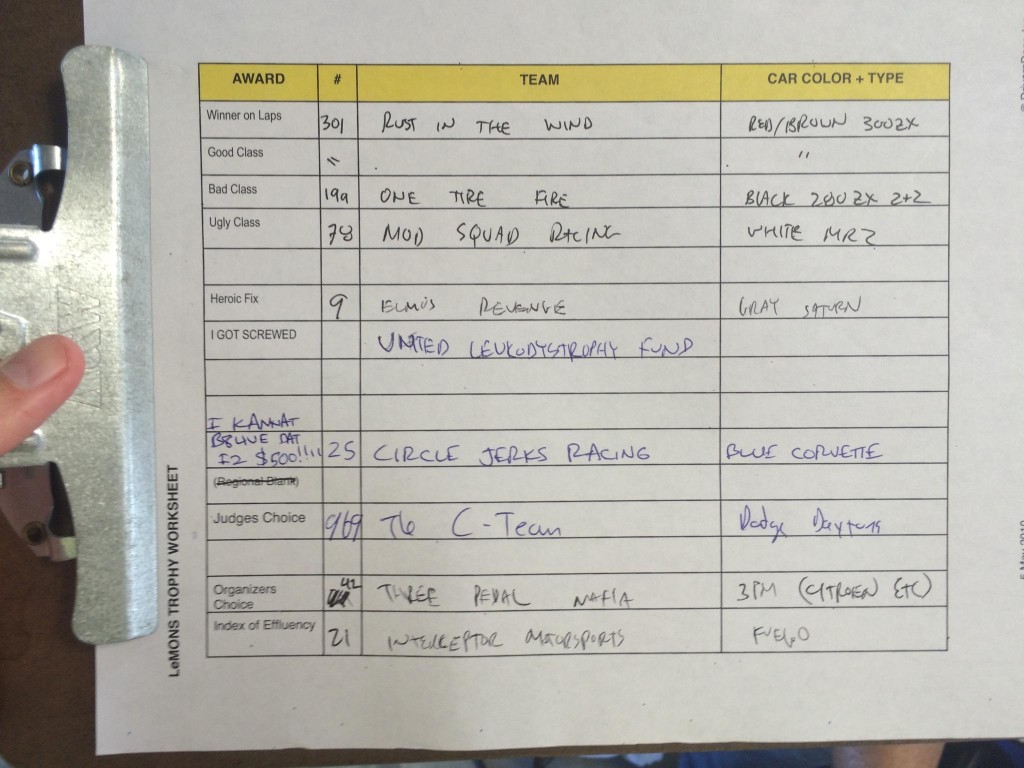 AWARD # TEAM CAR COLOR + TYPE
Winner on Laps 301 RUST IN THE WIND RED/BROWN 300ZX
Good Class " "
Bad Class 199 ONE TIRE FIRE BLACK 280ZX 2+2
Ugly Class 78 MOD SQUAD RACING WHITE MR2
Heroic Fix 9 ELMO'S REVENGE GRAY SATURN
I GOT SCREWED UNITED LEUKODYSTROPHY FUND
I KANNAT
B8LIVE DAT
IZ $500!!!! 25 CIRCLE JERKS RACING BLUE CORVETTE
(Regional Blank)
Judges Choice 969 The C-Team Dodge Daytona
Organizers
Choice 42 THREE PEDAL MAFIA 3PM (CITROEN ETC)
Index of Effluency 21 INTERCEPTOR MOTORSPORTS FUEGO
LeMONS TROPHY WORKSHEET